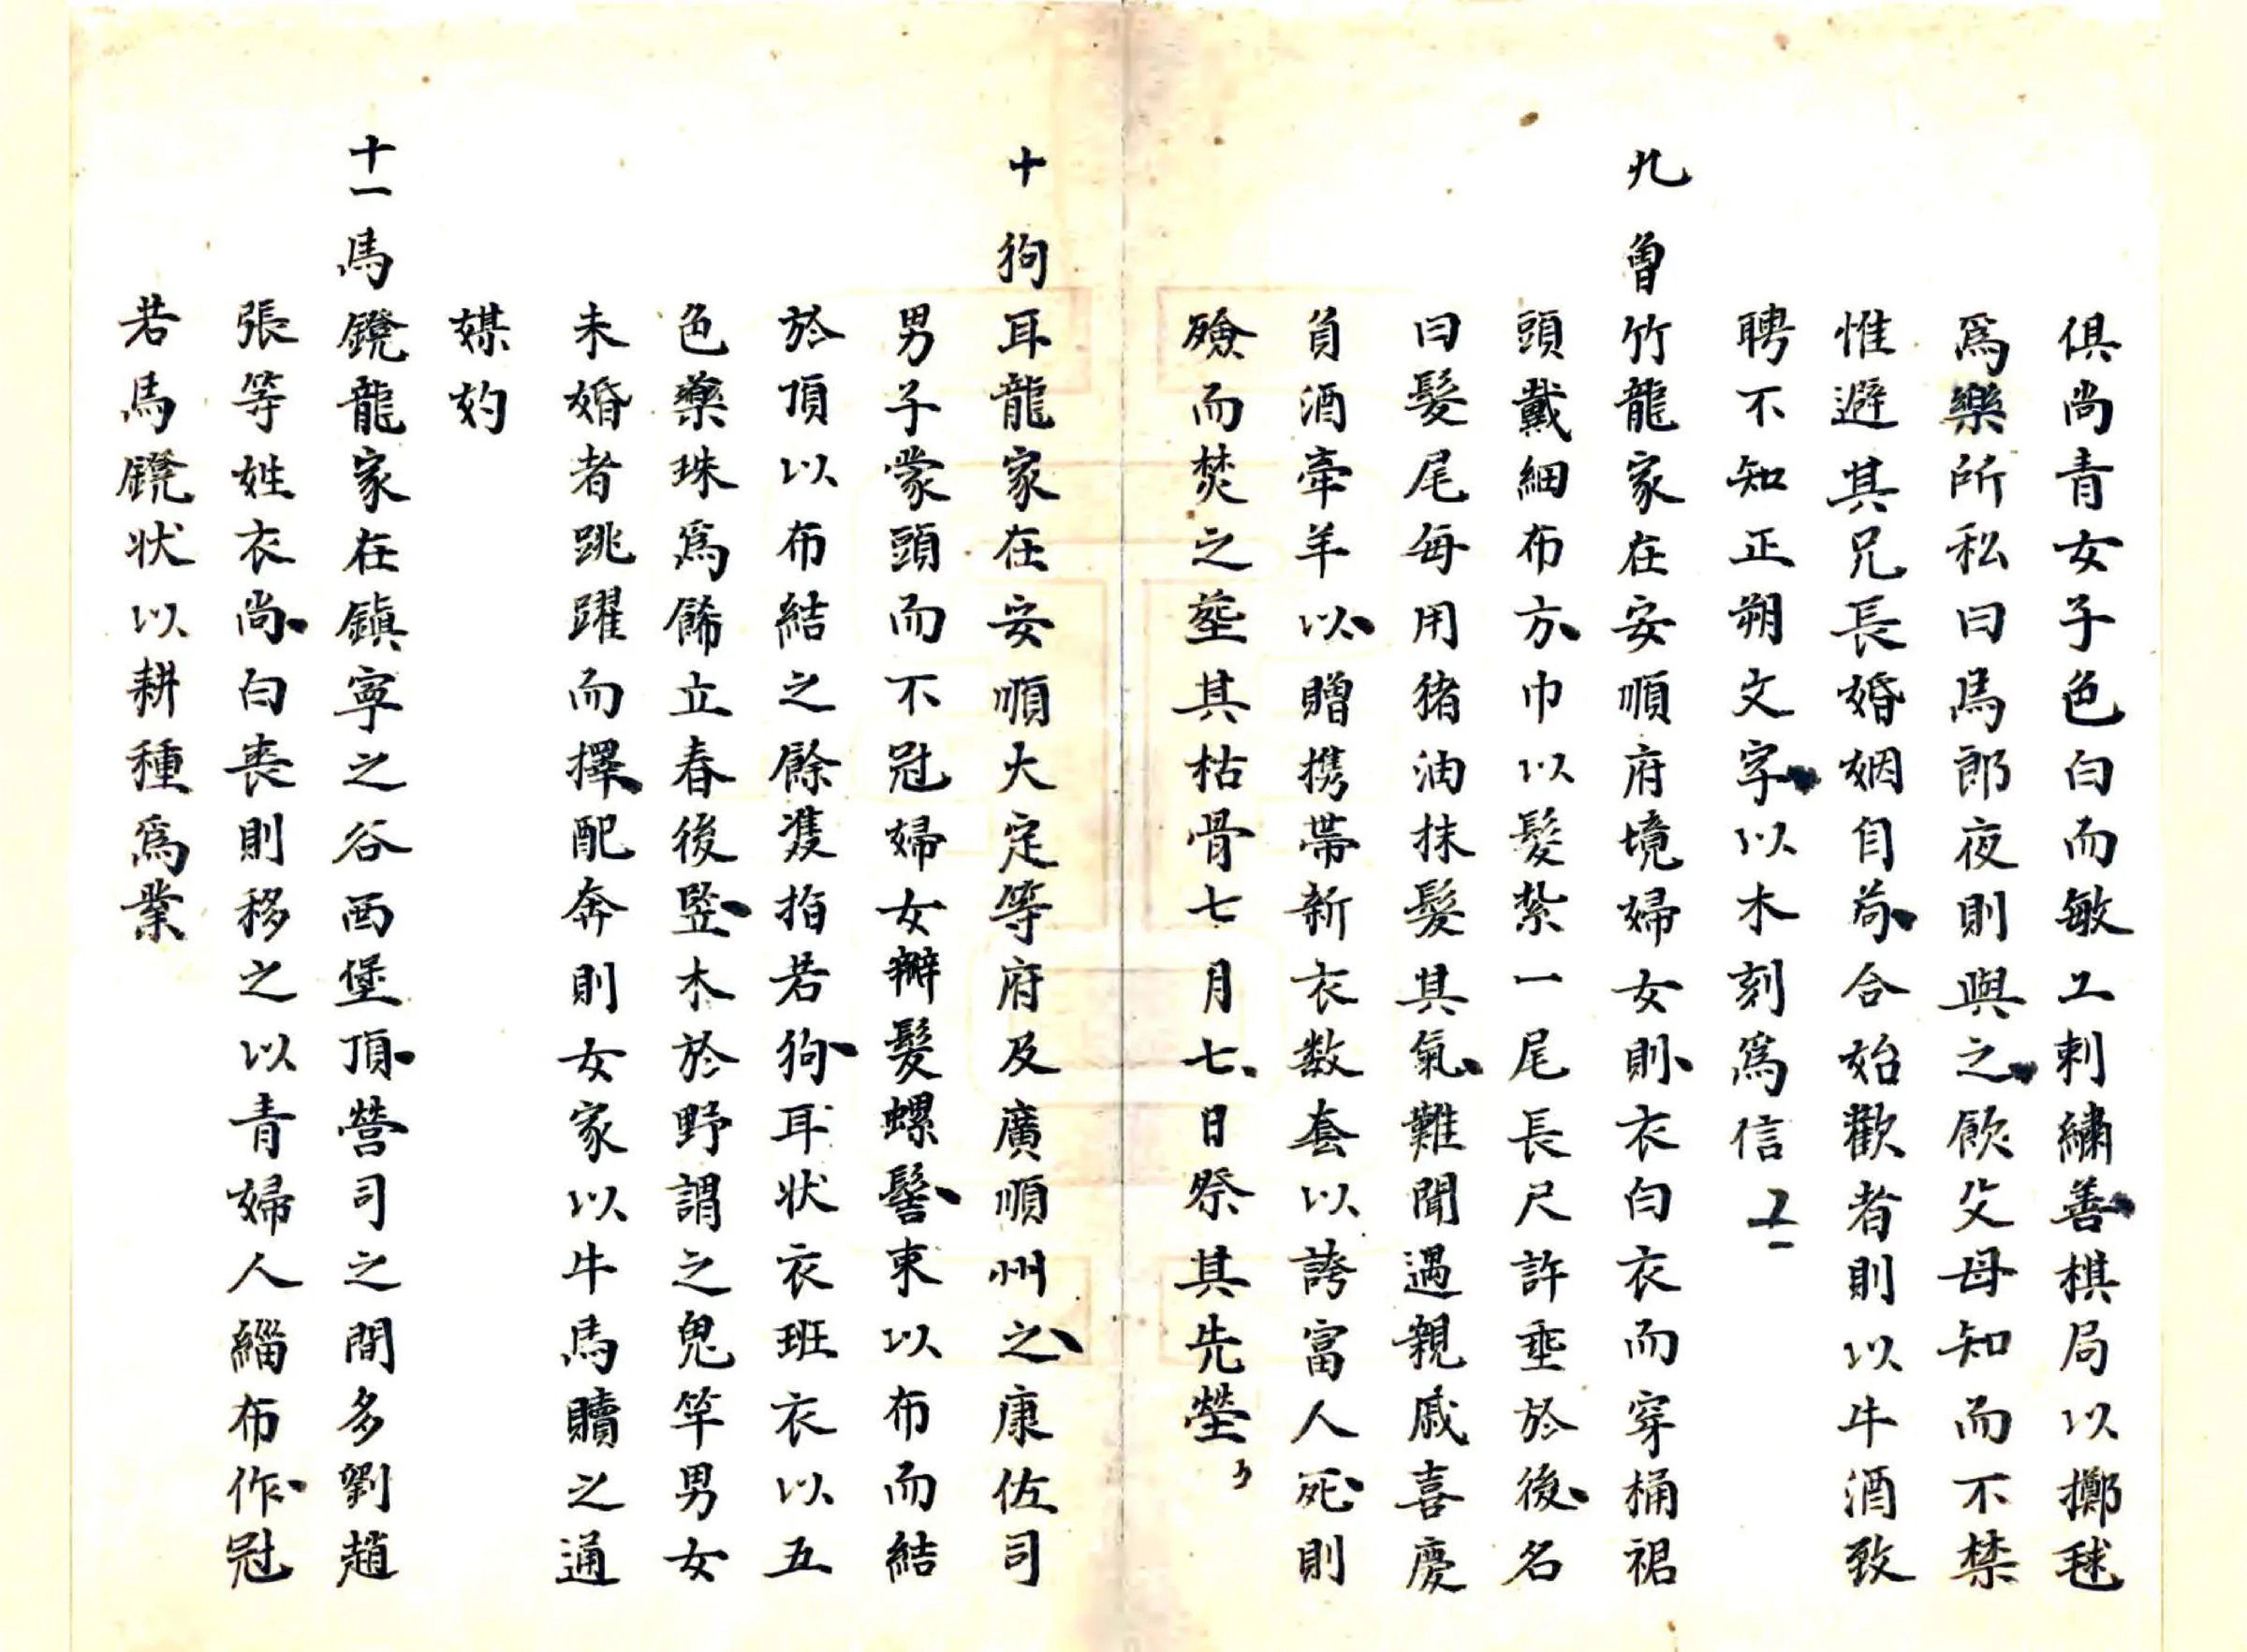 俱尚青女子色白而敏工刺繡善棋局以擲毬
爲樂所私曰馬郎夜則與之飲父母知而不禁
惟避其兄長婚姻自苟合始歡者則以牛酒致
聘不知正朔文字以木刻爲信
九曾竹龍家在安順府境婦女則衣白衣而穿桶裙
頭戴細布方巾以髮紮一尾長尺許垂於後名
曰髮尾每用猪油抹髮其氣難聞遇親戚喜慶
負酒牽羊以贈携帶新衣数套以誇富人死則
殮而焚之塟其枯骨七月七日祭其先塋
十狗耳龍家在安順大定等府及廣順州之康佐司
男子蒙頭而不冠婦女辮髮螺髻束以布而結
於頂以布結之餘雙拍若狗耳状衣班衣以五
色藥珠爲餙立春後竪木於野謂之鬼竿男女
未婚者跳躍而擇配奔則女家以牛馬贖之通
媒妁
十一馬鐙龍家在鎮寧之谷西堡頂營司之間多劉趙
張等姓衣尚白喪則移之以青婦人緇布作冠
若馬鐙状以耕種爲業